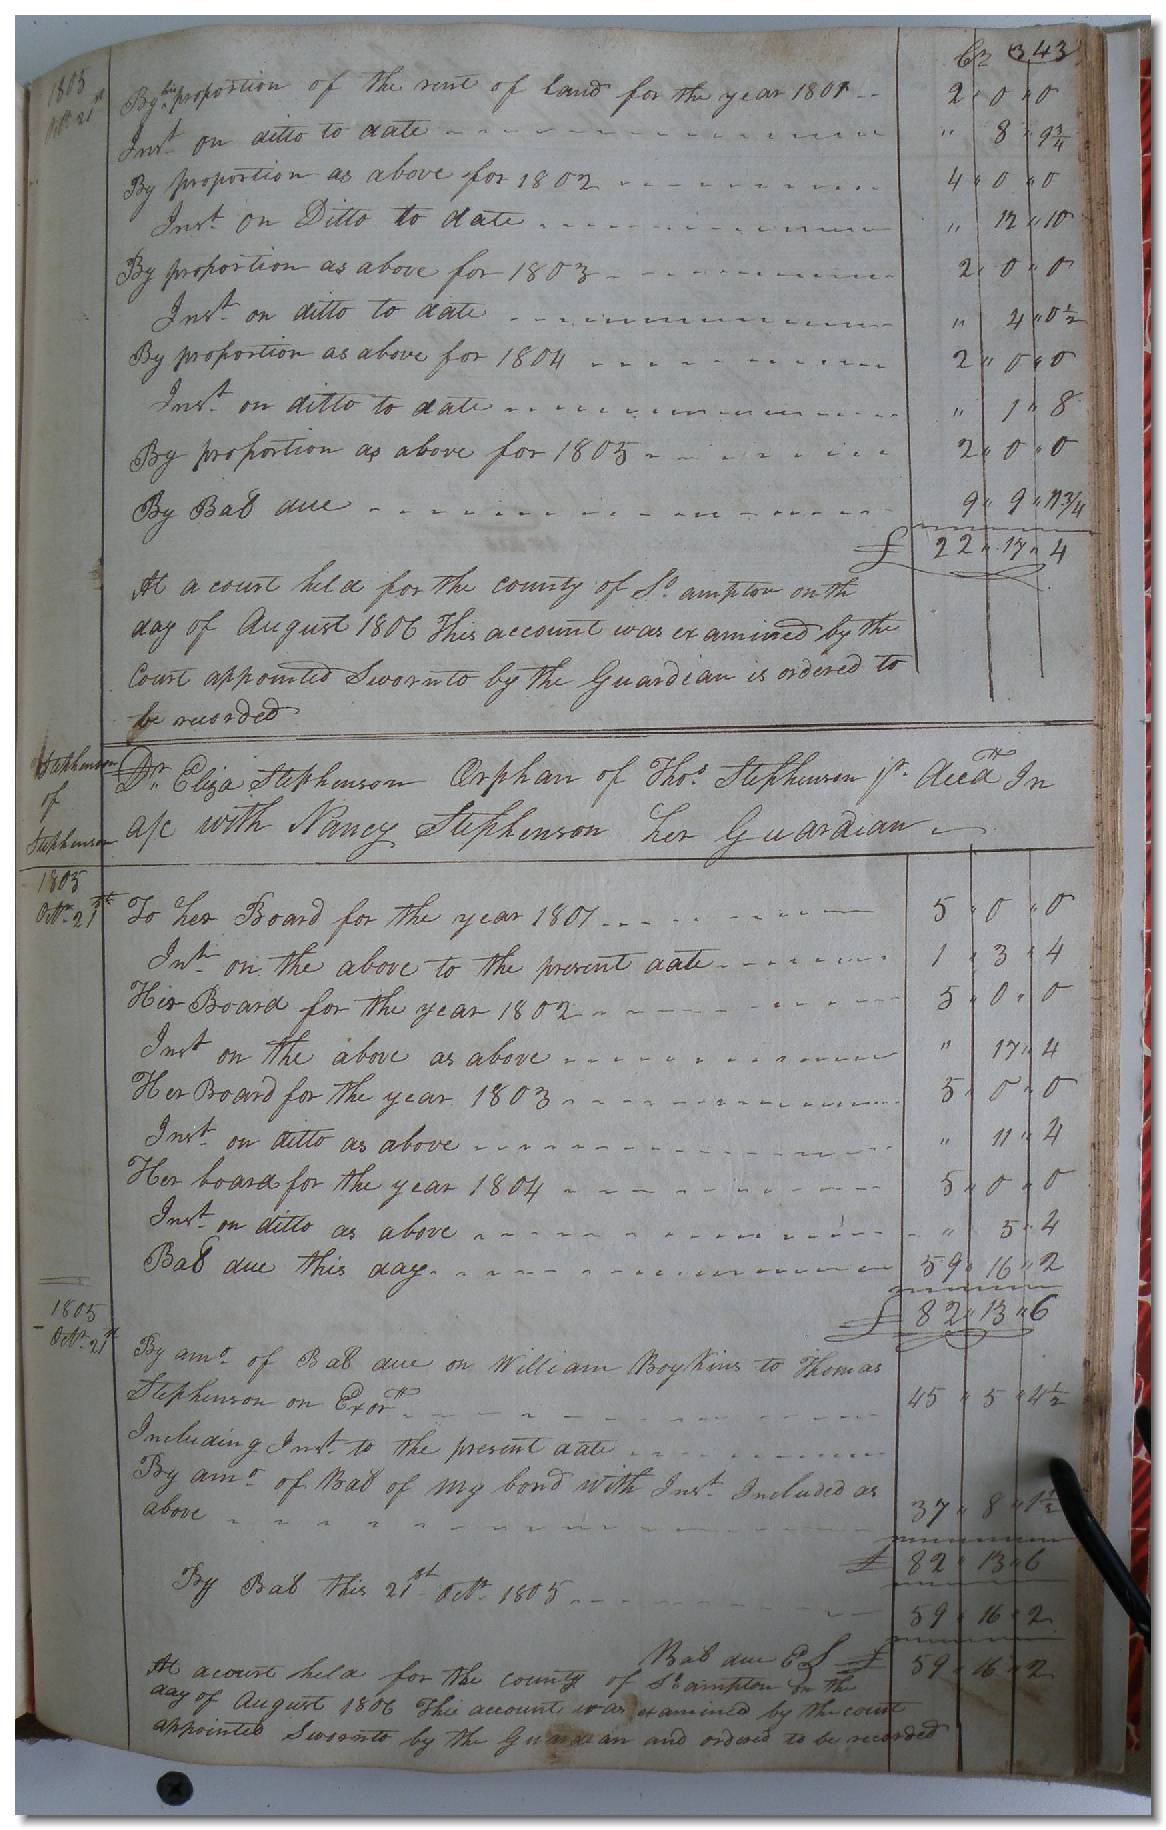 Cr 343
1805
Octr 21st
By his proportion of the rent of land for the year 1801 2 " 0 " 0
Inst. on ditto to date " 8 " 9 3/4
By proportion as above for 1802 4 " 0 " 0
Inst. on Ditto to date " 12 " 10
By proportion as above for 1803 2 " 0 " 0
Inst. on ditto to date " 4 " 0 1/2
By proportion as above for 1804 2 " 0 " 0
Inst. on ditto to date " 1 " 8
By proportion as above for 1805 2 " 0 " 0
By Bal due 9 " 9 " 11 3/4
£ 22 " 17 " 4
At a court held for the county of So. ampton on th
day of August 1806 This account was examined by the
Court appointed Sworn to by the Guardian is ordered to
be recorded
Stephenson
of
Stephenson
Dr. Eliza Stephenson Orphan of Thos. Stephenson jr. decd In
a/c with Nancy Stephenson her Guardian
1805
Octr. 21st
To her Board for the year 1801 5 " 0 " 0
Int. on the above to the present date 1 " 3 " 4
Her Board for the year 1802 5 " 0 " 0
Inst on the above as above " 17 " 4
Her Board for the year 1803 5 " 0 " 0
Inst. on ditto as above " 11 " 4
Her board for the year 1804 5 " 0 " 0
Inst. on ditto as above " 5 " 4
Bal due this day 59 " 16 " 2
£ 82 " 13 " 6
1805
Octr. 21st
By amo. of Bal due on William Boykins to Thomas
Stephenson on Exor 45 " 5 " 4 1/2
Including Inst. to the present date
By amo. of Bal of my bond with Inst. Included as
above 37 " 8 " 1 1/2
£ 82 " 13 " 6
By Bal this 21st Octr. 1805 59 " 16 " 2
Bal due ES £ 59 " 16 " 2
At a court held for the county of So. ampton on the
day of August 1806 This account was examined by the court
appointed Sworn to by the Guardian and ordered to be recorded